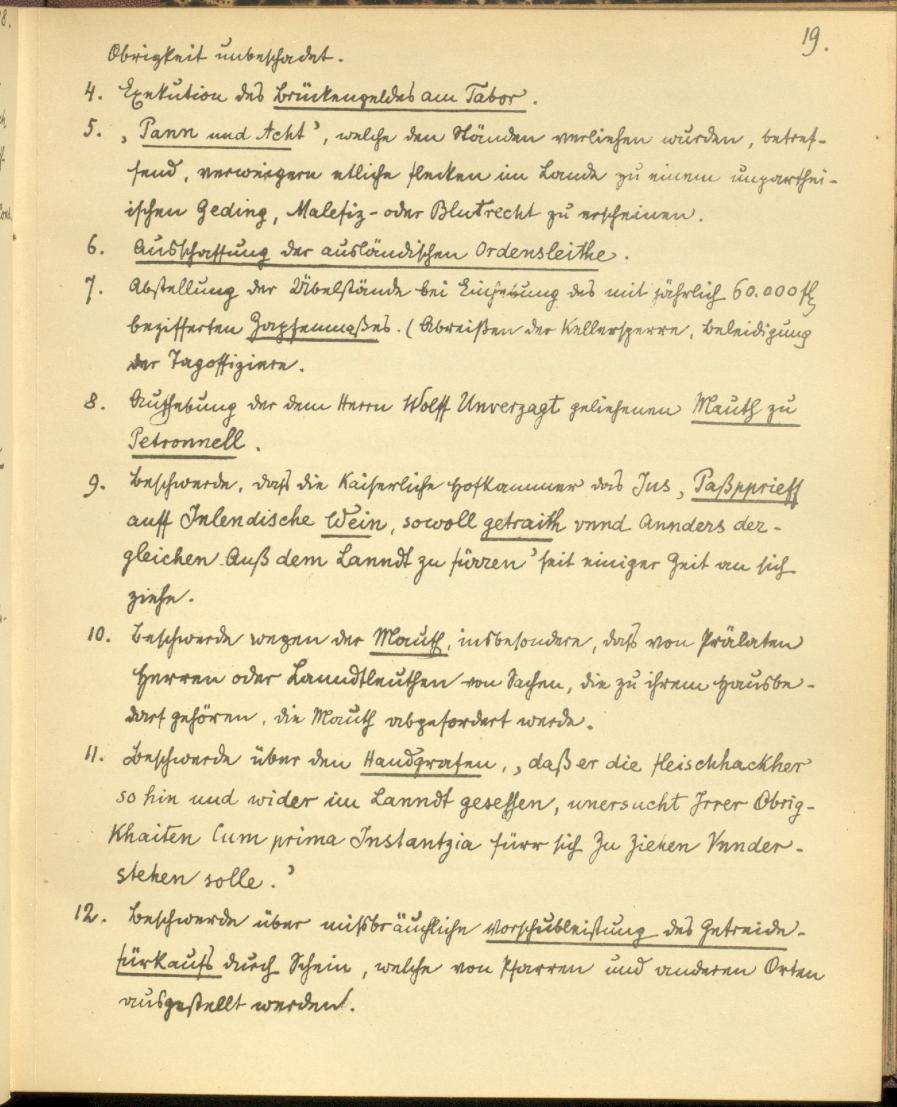 19.
Obrigkeit unbeschadet.
4. Exekution des Brückengeldes am Tabor.
5. ‚Pann und Acht', welche den Ständen verliehen wurden, betref-
fend, verweigern etliche Flecken im Lande zu einem unparthei-
ischen Geding, Malefiz- oder Blutrecht zu erscheinen.
6. Ausschaffung der ausländischen Ordensleithe.
7. Abstellung der Übelstände bei Einhebung des mit jährlich 60.000 fl
bezifferten Zapfenmaßes. (Abreißen der Kellersperre, Beleidigung
der Tagoffiziere.
8. Aufhebung der dem Herrn Wolff Unverzagt geliehenen Mauth zu
Petronnell.
9. Beschwerde, daß die Kaiserliche Hofkammer das Jus ‚Paßpprieff
auff Inlendische Wein, sowoll getraith vnnd Annders der-
gleichen Auß dem Lanndt zu fürren' seit einiger Zeit an sich
ziehe.
10. Beschwerde wegen der Mauth, insbesondere, daß von Prälaten
Herren oder Lanndtleuthen von Sachen, die zu ihrem Hausbe-
darf gehören, die Mauth abgefordert werde.
11. Beschwerde über den Handgrafen, ‚daß er die fleischhackher
so hin und wider im Lanndt gesessen, unersucht Irrer Obrig-
Khaiten Cum prima Instantzia fürr sich Zu Ziehen Vnnder-
stehen solle.'
12. Beschwerde über mißbräuchliche Vorschubleistung des Getreide-
fürkaufs durch Schein, welche von Pfarren und anderen Orten
ausgestellt werden.